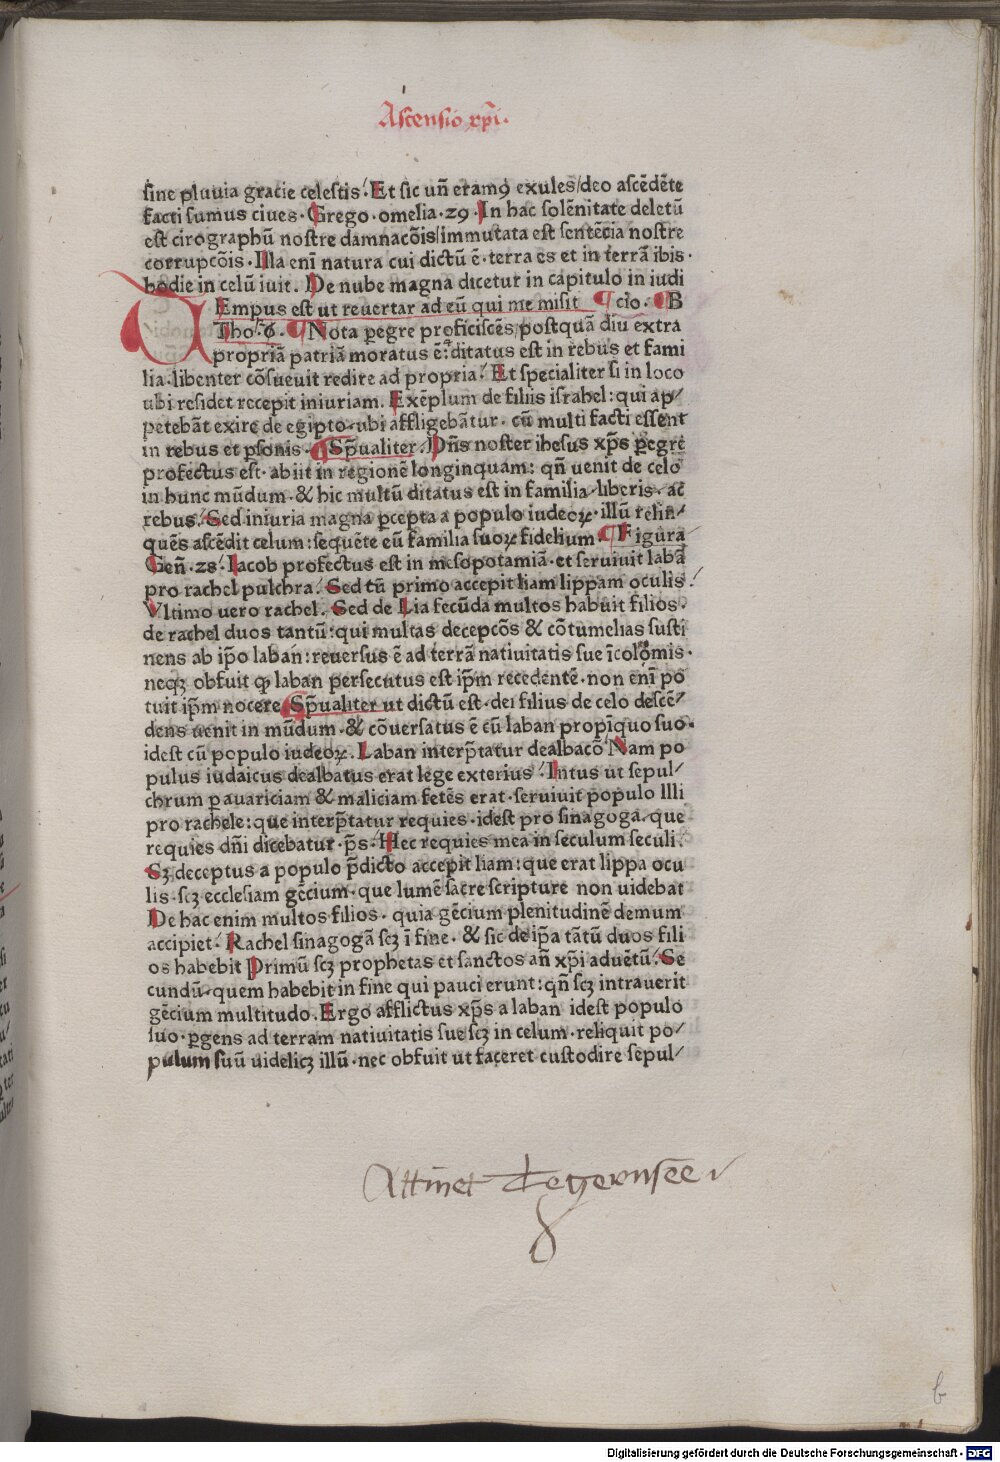 Ascensio xp̄i.
sine pluuia gracie celestis. Et sic un̄ eramꝰ exules/deo ascēdēte
facti sumus ciues. Grego. omelia. 29. In hac solēnitate deletū
est cirographū nostre damnacōis/immutata est sentēcia nostre
corrupcōis. Illa eni̅ natura cui dictū ē. terra es et in terrā ibis.
hodie in celū iuit. De nube magna dicetur in capitulo in iudi
TEmpus est ut reuertar ad eū qui me misit ¶ cło. ¶ B
Tho. ¶ Nota ꝑegre proficiscēs postquā diu extra
propriā patriā moratus ē: ditatus est in rebus et fami
lia. libenter cōsueuit redire ad propria. Et specialiter si in loco
ubi residet recepit iniuriam. Exēplum de filiis israhel: qui ap⸗
petebāt exire de egipto. ubi affligebātur. cū multi facti essent
in rebus et ꝑsonis. ¶ Sp̄ualiter. Dn̄s noster ihesus xp̄s ꝑegre
profectus est. abiit in regionē longinquam: qn̄ uenit de celo
in hunc mūdum. & hic multū ditatus est in familia. liberis. ac
rebus. Sed iniuria magna ꝑcepta a populo iudeoꝝ. illū relin⸗
quēs ascēdit celum: sequēte eū familia suoꝝ fidelium. ¶ Figura
Gen̄. 28. Iacob profectus est in mesopotamiā. et seruiuit labā
pro rachel pulchra. Sed tū primo accepit liam lippam oculis.
Vltimo uero rachel. Sed de Lia fecūda multos habuit filios.
de rachel duos tantū: qui multas decepcōs & cōtumelias susti
nens ab ip̄o laban: reuersus ē ad terrā natiuitatis sue i̅colomis.
neqꝫ obfuit ꝙ laban persecutus est ip̄m recedentē. non eni̅ po
tuit ip̄m nocere. Sp̄ualiter ut dictū est. dei filius de celo descē⸗
dens uenit in mūdum. & cōuersatus ē cū laban propi̅quo suo.
idest cū populo iudeoꝝ. Laban interp̄tatur dealbacō. Nam po
pulus iudaicus dealbatus erat lege exterius. Intus ut sepul⸗
chrum ꝑ auariciam & maliciam fetēs erat. seruiuit populo Illi
pro rachele: que interp̄tatur requies. idest pro sinagoga. que
requies dn̄i dicebatur. p̄s. Hec requies mea in seculum seculi.
Sꝫ deceptus a populo p̄dicto accepit liam: que erat lippa ocu
lis. scꝫ ecclesiam gēcium. que lumē sacre scripture non uidebat
De hac enim multos filios. quia gēcium plenitudinē demum
accipiet. Rachel sinagogā scꝫ i̅ fine. & sic de ip̄a tātū duos fili
os habebit Primū scꝫ prophetas et sanctos an̄ xp̄i aduētū. Se
cundū. quem habebit in fine qui pauci erunt: qn̄ scꝫ intrauerit
gēcium multitudo. Ergo afflictus xp̄s a laban idest populo
suo. ꝑgens ad terram natiuitatis sue scꝫ in celum. reliquit po⸗
pulum suū uidelicꝫ illū. nec obfuit ut faceret custodire sepul⸗
Attinet Tegernsee
b
Digitalisierung gefördert durch die Deutsche Forschungsgemeinschaft - DFG